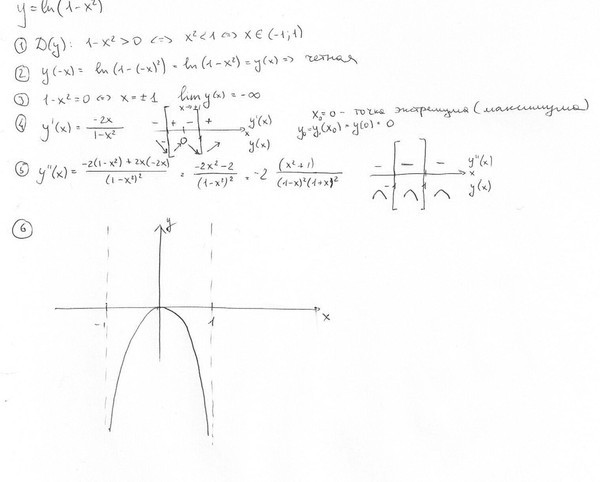 y = ln(1-x²)
① D(y): 1-x²>0 <=> x²<1 <=> x∈(-1;1)
② y(-x) = ln(1-(-x)²) = ln(1-x²) = y(x) => четная
③ 1-x²=0 <=> x=±1 lim y(x) = -∞
x→±1
④ y'(x) = -2x/(1-x²) - + - + y'(x) x
-1 0 1 y(x)
x₀=0 - точка экстремума (максимума)
y₀=y(x₀)=y(0)=0
⑤ y''(x) = (-2(1-x²)+2x(-2x))/(1-x²)² = (-2x²-2)/(1-x²)² = -2 (x²+1)/((1-x)²(1+x)²)
- - - y''(x)
-1 1 x
y(x)
⑥
y
-1 1 x